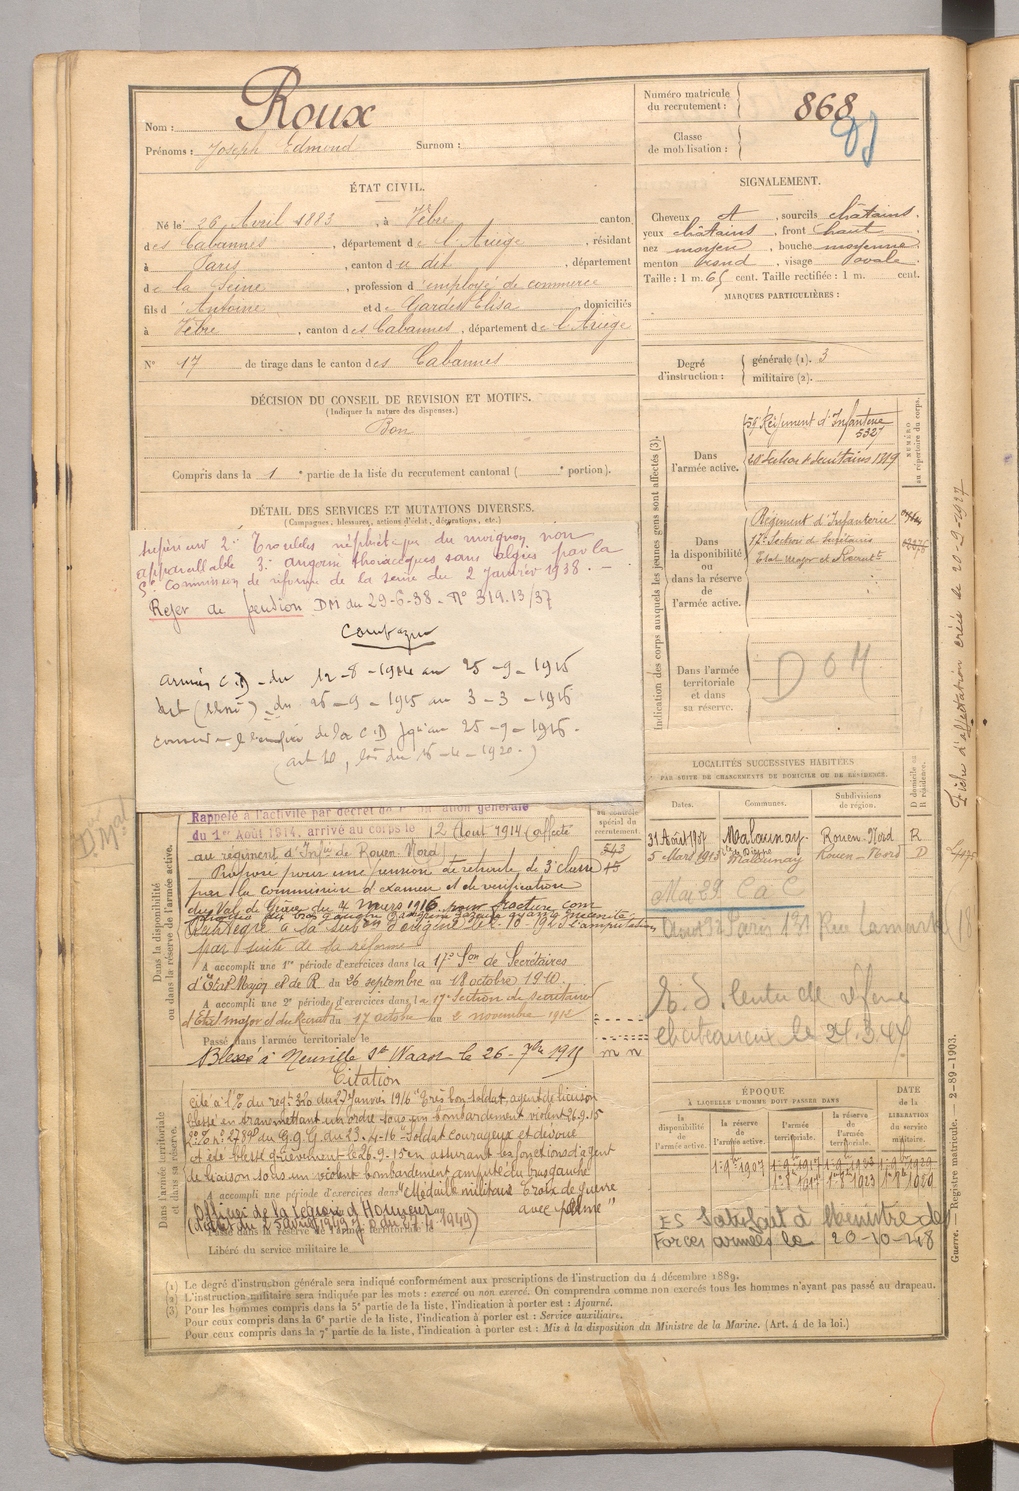 Nom : Roux
Prénoms : Joseph Edmond Surnom :
Numéro matricule du recrutement : 868
Classe de mobilisation :
ÉTAT CIVIL.
Né le 26 Avril 1883, à Vèbre canton
des Cabannes, département de l'Ariège, résidant
à Paris, canton du dit, département
de la Seine, profession d'employé de commerce
fils d'Antoine et de Garden Elisa, domiciliés
à Vèbre, canton des Cabannes, département de l'Ariège
N° 17 de tirage dans le canton des Cabannes
SIGNALEMENT.
Cheveux et, sourcils châtains,
yeux châtains, front haut,
nez moyen, bouche moyenne,
menton rond, visage ovale.
Taille : 1 m. 65 cent. Taille rectifiée : 1 m. cent.
MARQUES PARTICULIÈRES :
Degré d'instruction : générale (1). 3
militaire (2).
DÉCISION DU CONSEIL DE REVISION ET MOTIFS.
(Indiquer la nature des dispenses.)
Bon
Compris dans la 1e partie de la liste du recrutement cantonal ( e portion).
DÉTAIL DES SERVICES ET MUTATIONS DIVERSES.
(Campagnes, blessures, actions d'éclat, décorations, etc.)
supérieur 2° Troubles du moignon non
appareillable 3° angine thoracique sans algies par la
Commission de réforme de la Seine du 2 Janvier 1938. —
Rejet de pension DM du 29-6-38 - N° 319.13/37
Campagne
Armées C.D - du 12-8-1914 au 25-9-1915
du 26-9-1915 au 3-3-1916
de la C.D jqu'au 25-9-1916 -
(art 10, loi du 16-4-1920.)
Indication des corps auxquels les jeunes gens sont affectés (3).
NUMÉRO au répertoire du corps.
Dans l'armée active.
59 Régiment d'Infanterie 5327
20 Section de Secrétaires 1219
Dans la disponibilité ou dans la réserve de l'armée active.
Régiment d'Infanterie
17e Section de Secrétaires
Etat Major et Recrut-t
Dans l'armée territoriale et dans sa réserve.
DOM
Fiche d'affectation créée le 20-9-1927
LOCALITÉS SUCCESSIVES HABITÉES
PAR SUITE DE CHANGEMENTS DE DOMICILE OU DE RÉSIDENCE.
Dates. Communes. Subdivisions de région. D domicile ou R résidence.
31 Août 1907 Malaunay. Rouen-Nord R
5 Mars 1913 Malaunay Rouen-Nord D
Mai 29 C a C
Août 32 Paris 131 Rue Lamarck (18
R. D. Centre de réforme
Chateauroux le 24.3.44
Dans la disponibilité ou dans la réserve de l'armée active.
Rappelé à l'activité par décret de mobilisation générale
du 1er Août 1914, arrivé au corps le 12 Aout 1914 (affecté
au régiment d'Infie de Rouen-Nord)
Proposé pour une pension de retraite de 3e classe
par la commission d'examen et de vérification
du Val de Grâce du 4 Mars 1916 pour fracture com
par suite de sa réforme
A accompli une 1re période d'exercices dans la 17e Son de Secrétaires
d'Etat Major et de R. du 26 septembre au 18 octobre 1910.
A accompli une 2e période d'exercices dans la 17e Section de Secrétaires
d'Etat major et du Recrut du 17 octobre au 2 novembre 1912
Passé dans l'armée territoriale le
Blessé à Neuville St Waast le 26-7bre 1915
Dans l'armée territoriale et dans sa réserve.
Citation
Cité à l'O/ du regt 320 du 27 Janvier 1916 "Très bon soldat, agent de liaison
blessé en transmettant un ordre sous un bombardement violent 26.9.15
2° O. n° 2789D du G.Q.G du 23.4.16 "Soldat courageux et dévoué
a été blessé grièvement le 26.9.15 en assurant les fonctions d'agent
de liaison sous un violent bombardement, amputé du bras gauche
A accompli une période d'exercices dans
"Médaille militaire Croix de guerre avec palme"
Officier de la Légion d'Honneur
(décret du 25 avril 1949 J.O. du 27.4.1949)
Passé dans la réserve de l'armée territoriale le
Libéré du service militaire le
ÉPOQUE
À LAQUELLE L'HOMME DOIT PASSER DANS
la disponibilité de l'armée active.
la réserve de l'armée active.
l'armée territoriale.
la réserve de l'armée territoriale.
DATE de la LIBÉRATION du service militaire.
1er 9bre 1907
1er 8bre 1917
1er 8bre 1923
ES Satisfait à Ministre des
Forces armées le 20-10-48
Guerre. — Registre matricule. — 2-89-1903.
(1) Le degré d'instruction générale sera indiqué conformément aux prescriptions de l'instruction du 4 décembre 1889.
(2) L'instruction militaire sera indiquée par les mots : exercé ou non exercé. On comprendra comme non exercés tous les hommes n'ayant pas passé au drapeau.
(3) Pour les hommes compris dans la 5e partie de la liste, l'indication à porter est : Ajourné.
Pour ceux compris dans la 6e partie de la liste, l'indication à porter est : Service auxiliaire.
Pour ceux compris dans la 7e partie de la liste, l'indication à porter est : Mis à la disposition du Ministre de la Marine. (Art. 4 de la loi.)